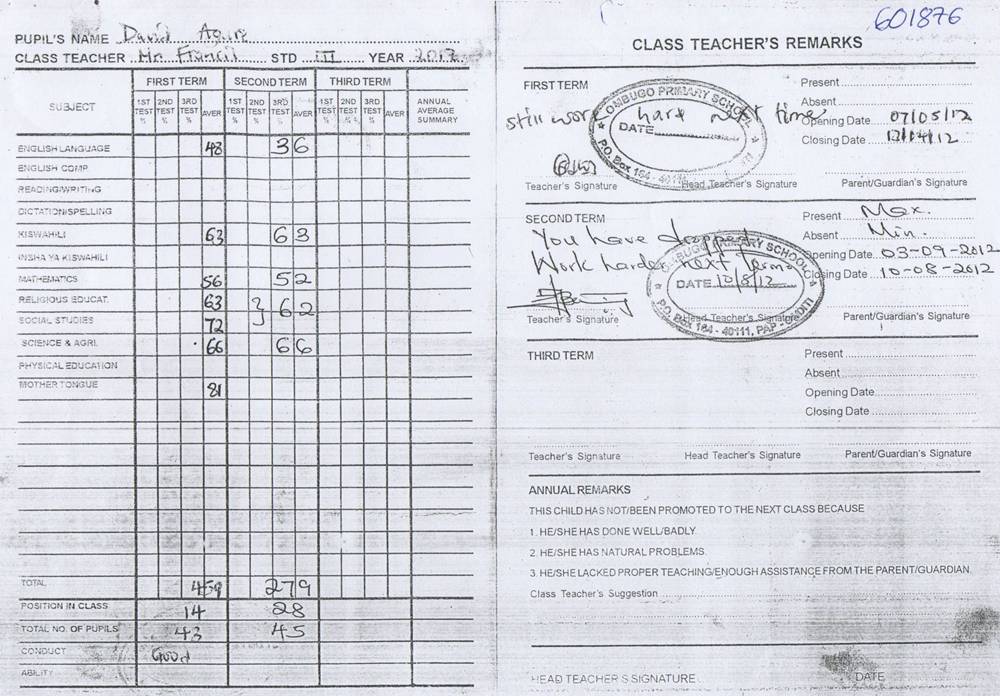 601876
PUPIL'S NAME David
CLASS TEACHER Mr. Francis STD III YEAR 2012
SUBJECT FIRST TERM SECOND TERM THIRD TERM ANNUAL AVERAGE SUMMARY
1ST TEST % 2ND TEST % 3RD TEST % AVER 1ST TEST % 2ND TEST % 3RD TEST % AVER 1ST TEST % 2ND TEST % 3RD TEST % AVER
ENGLISH LANGUAGE 48 36
ENGLISH COMP.
READING/WRITING
DICTATION/SPELLING
KISWAHILI 63 63
INSHA YA KISWAHILI
MATHEMATICS 56 52
RELIGIOUS EDUCAT. 63 } 62
SOCIAL STUDIES 72
SCIENCE & AGRI. 66 66
PHYSICAL EDUCATION
MOTHER TONGUE 81
TOTAL 279
POSITION IN CLASS 14 28
TOTAL NO. OF PUPILS 43 45
CONDUCT Good
ABILITY
CLASS TEACHER'S REMARKS
FIRST TERM
still work hard next time
OMBUGO PRIMARY SCHOOL
DATE
P.O. Box 184 - 40111
Present
Absent
Opening Date 07/05/12
Closing Date 12/04/12
Teacher's Signature Head Teacher's Signature Parent/Guardian's Signature
SECOND TERM
You have dropped.
Work harder next term.
OMBUGO PRIMARY SCHOOL
DATE 10/8/12
P.O. Box 184 - 40111, PAP - ONDITI
Present Max.
Absent Min.
Opening Date 03-09-2012
Closing Date 10-08-2012
Teacher's Signature Head Teacher's Signature Parent/Guardian's Signature
THIRD TERM
Present
Absent
Opening Date
Closing Date
Teacher's Signature Head Teacher's Signature Parent/Guardian's Signature
ANNUAL REMARKS
THIS CHILD HAS NOT/BEEN PROMOTED TO THE NEXT CLASS BECAUSE
1. HE/SHE HAS DONE WELL/BADLY.
2. HE/SHE HAS NATURAL PROBLEMS.
3. HE/SHE LACKED PROPER TEACHING/ENOUGH ASSISTANCE FROM THE PARENT/GUARDIAN.
Class Teacher's Suggestion
HEAD TEACHER'S SIGNATURE DATE